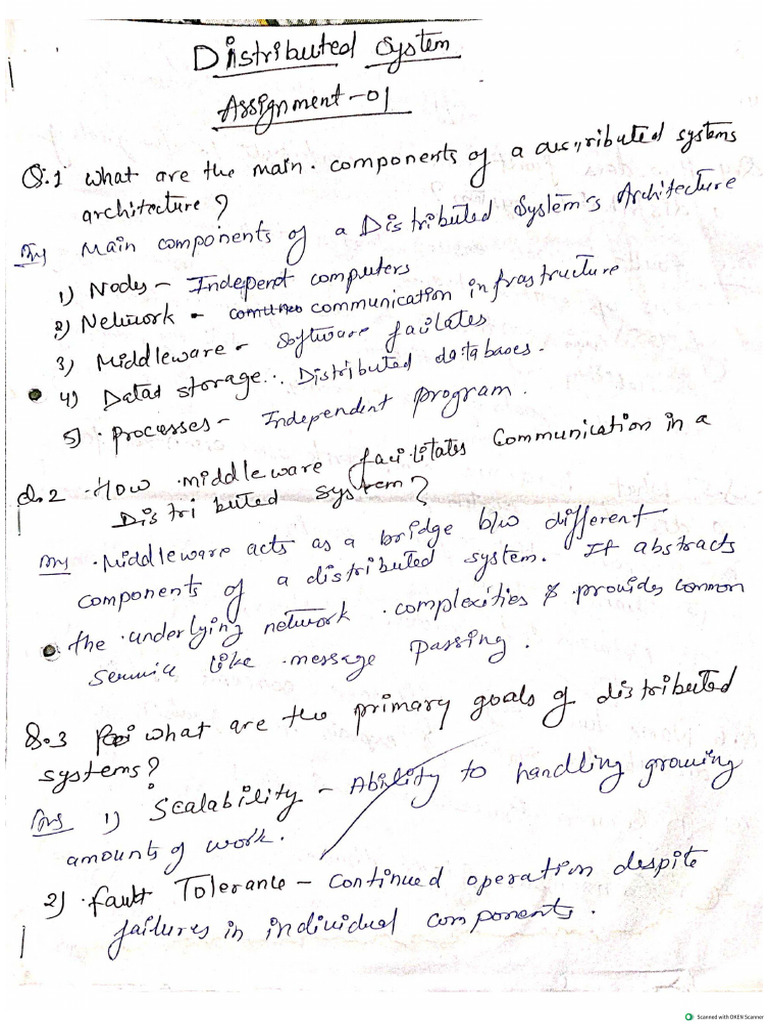 Distributed System
Assignment-01
Q.1 What are the main components of a distributed systems
architecture?
Ans Main components of a Distributed System's Architecture
1) Nodes - Indepent computers
2) Network - communication infrastructure
3) Middleware - Software facilates
4) Data storage.. Distributed databases.
5) Processes - Independent program.
Q.2 How middleware facilitates Communication in a
Distributed system?
Ans Middleware acts as a bridge b/w different
components of a distributed system. It abstracts
the underlying network complexities & provides common
service like message passing.
Q.3 What are the primary goals of distributed
systems?
Ans 1) Scalability - Ability to handling growing
amounts of work.
2) Fault Tolerance - Continued operation despite
failures in individual components.
Scanned with OKEN Scanner